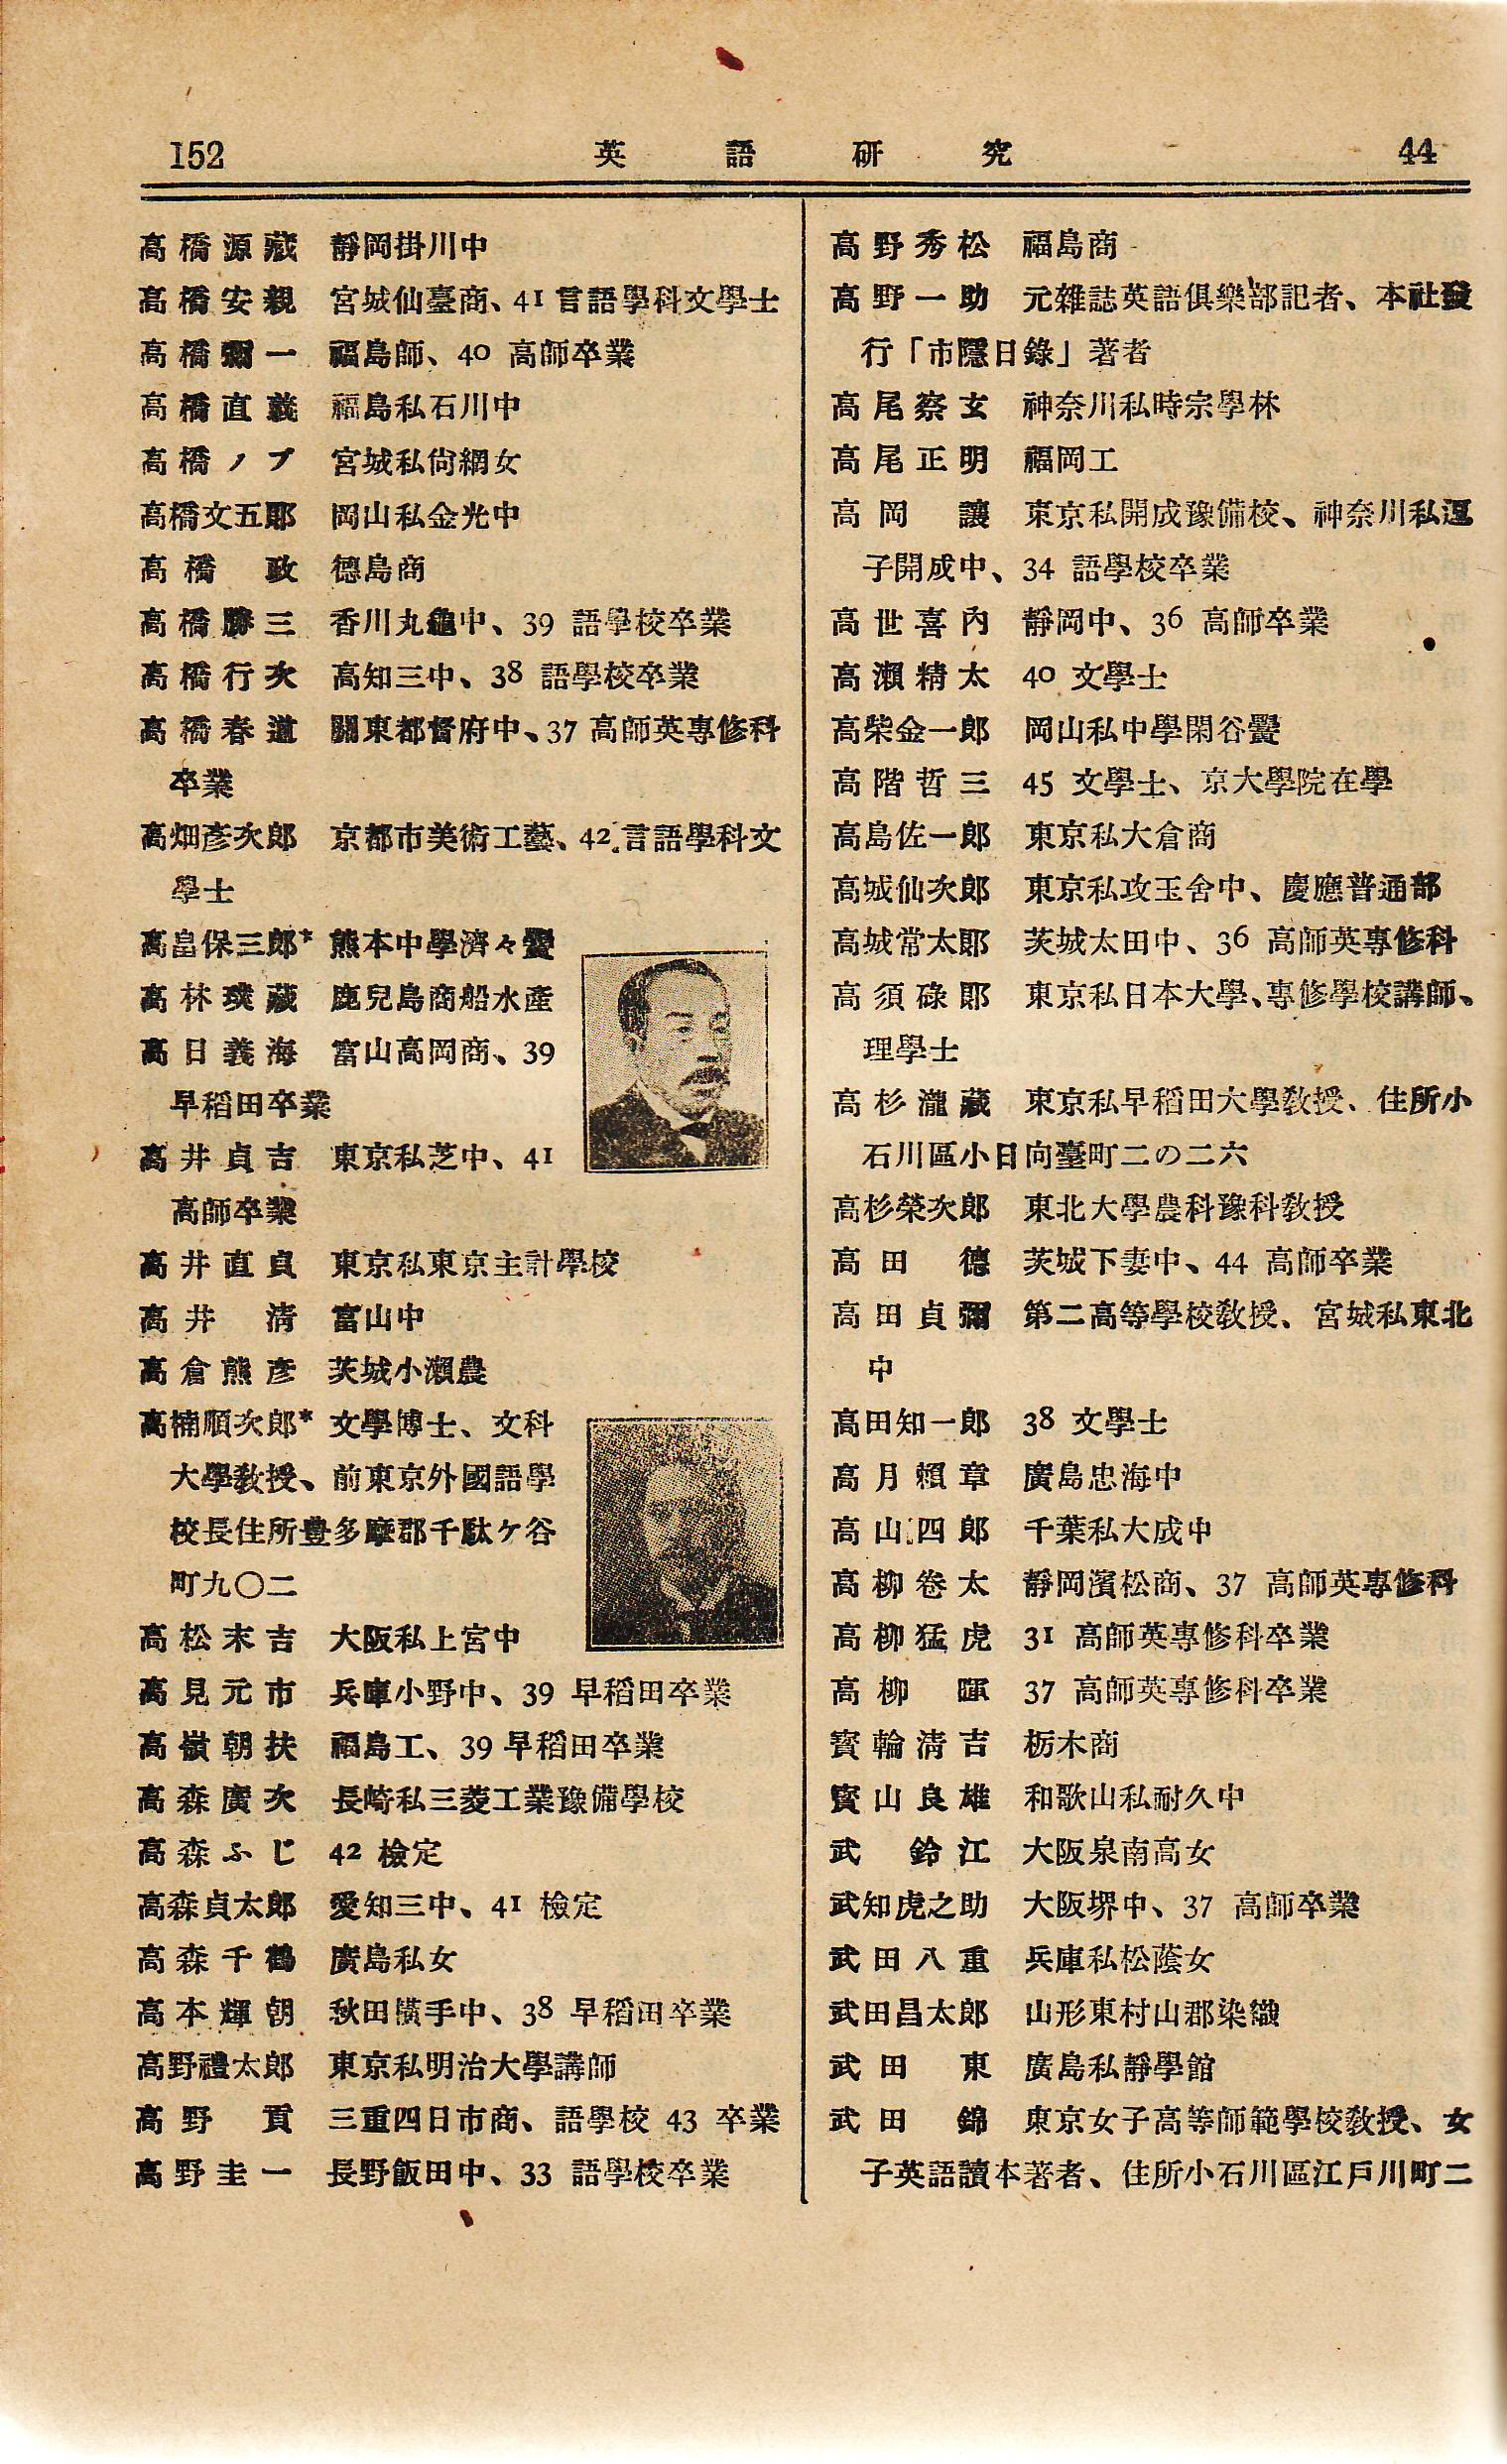 152 英語研究 44
高橋源藏 靜岡掛川中
高橋安親 宮城仙臺商、41 言語學科文學士
高橋彌一 福島師、40 高師卒業
高橋直義 福島私石川中
高橋ノブ 宮城私尙絅女
高橋文五郞 岡山私金光中
高橋政 德島商
高橋勝三 香川丸龜中、39 語學校卒業
高橋行次 高知三中、38 語學校卒業
高橋春道 關東都督府中、37 高師英專修科
卒業
高畑彥次郎 京都市美術工藝、42 言語學科文
學士
高畠保三郎* 熊本中學濟々黌
高林璞藏 鹿兒島商船水產
高日義海 富山高岡商、39
早稻田卒業
高井貞吉 東京私芝中、41
高師卒業
高井直貞 東京私東京主計學校
高井淸 富山中
高倉熊彥 茨城小瀨農
高楠順次郎* 文學博士、文科
大學敎授、前東京外國語學
校長住所豊多摩郡千駄ケ谷
町九〇二
高松末吉 大阪私上宮中
高見元市 兵庫小野中、39 早稻田卒業
高嶺朝扶 福島工、39 早稻田卒業
高森廣次 長崎私三菱工業豫備學校
高森ふじ 42 檢定
高森貞太郎 愛知三中、41 檢定
高森千鶴 廣島私女
高本輝朝 秋田橫手中、38 早稻田卒業
高野禮太郎 東京私明治大學講師
高野貢 三重四日市商、語學校 43 卒業
高野圭一 長野飯田中、33 語學校卒業
高野秀松 福島商
高野一助 元雜誌英語俱樂部記者、本社發
行「市隱日錄」著者
高尾察玄 神奈川私時宗學林
高尾正明 福岡工
高岡讓 東京私開成豫備校、神奈川私逗
子開成中、34 語學校卒業
高世喜內 靜岡中、36 高師卒業
高瀨精太 40 文學士
高柴金一郎 岡山私中學閑谷黌
高階哲三 45 文學士、京大學院在學
高島佐一郎 東京私大倉商
高城仙次郎 東京私攻玉舍中、慶應普通部
高城常太郎 茨城太田中、36 高師英專修科
高須碌郎 東京私日本大學、專修學校講師、
理學士
高杉瀧藏 東京私早稻田大學敎授、住所小
石川區小日向臺町二の二六
高杉榮次郎 東北大學農科豫科敎授
高田德 茨城下妻中、44 高師卒業
高田貞彌 第二高等學校敎授、宮城私東北
中
高田知一郎 38 文學士
高月賴章 廣島忠海中
高山四郎 千葉私大成中
高柳卷太 靜岡濱松商、37 高師英專修科
高柳猛虎 31 高師英專修科卒業
高柳 37 高師英專修科卒業
寳輪淸吉 栃木商
寳山良雄 和歌山私耐久中
武鈴江 大阪泉南高女
武知虎之助 大阪堺中、37 高師卒業
武田八重 兵庫私松蔭女
武田昌太郎 山形東村山郡染織
武田東 廣島私靜學館
武田錦 東京女子高等師範學校敎授、女
子英語讀本著者、住所小石川區江戸川町二